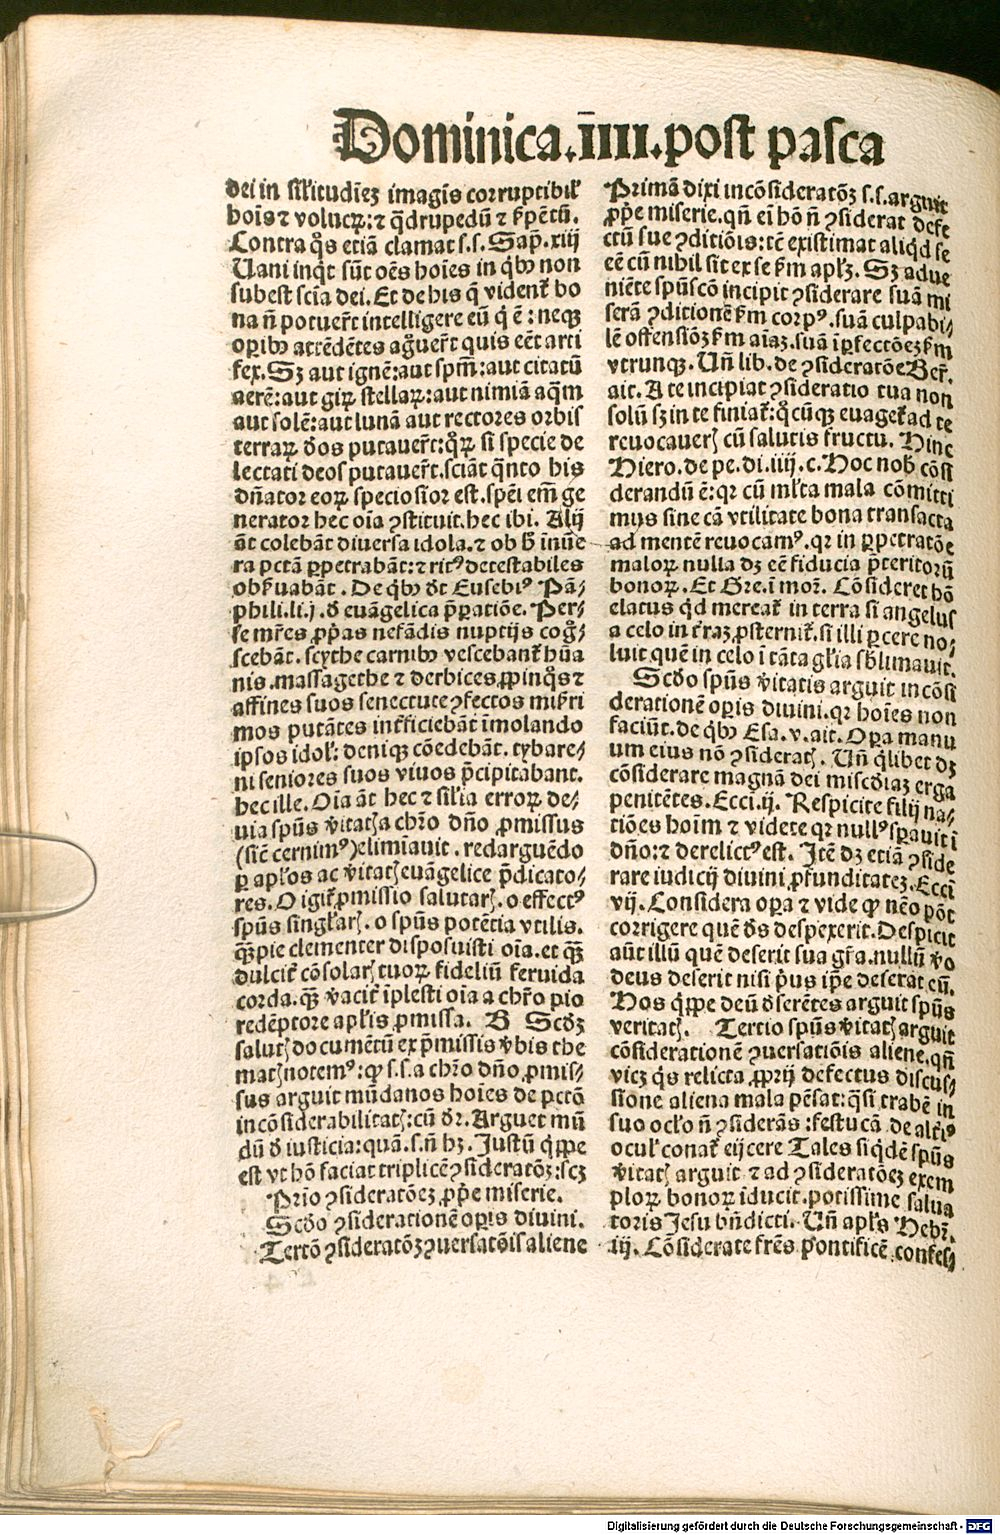 Dominica.īīīī.post pasca
dei in silitudīeꝫ imagīs corruptibil̛
hoīs ⁊ volucꝝ: ⁊ q̄drupedū ⁊ ẜpētū.
Contra q̊s etiā clamat s.s. Sap̄. xiij
Uani inq̇t sūt oēs hoīes in q̇bꝰ non
subest scīa dei. Et de his q̄ vident̛ bo
na n̄ potuer̄t intelligere eū q̇ ē: neqꝫ
oꝑibꝰ attēdētes agͦuer̄t quis eēt arti
fex. Sꝫ aut ignē: aut spm̄: aut citatū
aerē: aut girꝝ stellaꝝ: aut nimiā aq̄m
aut solē: aut lunā aut rectores orbis
terraꝝ đos putauer̄t: qͦꝝ si specie de
lectati deos putauer̄t. sciāt q̄nto his
dn̄ator eoꝝ speciosior est. spēi em̄ ge
nerator hec oīa ꝯstituit. hec ibi. Alij
āt colebāt diuersa idola. ⁊ ob ħ innūe
ra pctā ꝑpetrabāt: ⁊ ritꝰ detestabiles
obẜuabāt. De q̇bꝰ đt Eusebiꝰ Pā⸗
phili. li. j. đ euāgelica p̄ꝑatiōe. Per⸗
se mr̄es ꝓp̄as nefādis nuptijs cogͦ⸗
scebāt. scythe carnibꝰ vescebant̛ hūa
nis. massagethe ⁊ derbices, ꝓpinq̊s ⁊
affines suos senectute ꝯfectos miẜri
mos putātes int̛ficiebāt īmolando
ipsos idol̛: deniqꝫ cōedebāt. tybare⸗
ni seniores suos viuos p̄cipitabant.
hec ille. Oīa āt hec ⁊ sil̛ia erroꝝ de⸗
uia spūs v̛itatꝭ a chr̄o dn̄o ꝓmissus
(sic̄ cernimꝰ) elimiauit. redarguēdo
ꝑ apl̛os ac v̛itatꝭ euāgelice p̄dicato⸗
res. O igit̛ ꝓmissio salutarꝭ. o effectꝰ
spūs singl̛arꝭ. o spūs potētia vtilis.
q̄ꝫ pie clementer disposuisti oīa. et q̄ꝫ
dulcit̛ cōsolarꝭ tuoꝝ fideliū feruida
corda. q̄ꝫ v̛acit̛ īplesti oīa a chr̄o pio
redēptore apl̛is ꝓmissa. B Scđꝫ
salutꝭ documētū ex p̄missis v̛bis the
matꝭ notemꝰ: ꝙ s.s. a chr̄o dn̄o ꝓmis⸗
sus arguit mūdanos hoīes de pctō
incōsiderabilitatꝭ: cū đr. Arguet mū
dū đ iusticia: quā. s. n̄ hꝫ. Justū q̇ppe
est vt hō faciat triplicē ꝯsideratōꝫ: scꝫ
Prio ꝯsideratōeꝫ ꝓp̄e miserie.
Scđo ꝯsiderationē oꝑis diuini.
Tertō ꝯsideratōꝫ ꝯuersatōis aliene
Primā dixi incōsideratōꝫ s.s. arguit
ꝓp̄e miserie. qn̄ ei hō n̄ ꝯsiderat defe
ctū sue ꝯditiōis: tē existimat aliq̇d se
eē cū nihil sit ex se ẜm apl̛ꝫ. Sꝫ adue
niēte spūscō incipit ꝯsiderare suā mi
serā ꝯditionē ẜm corpꝰ. suā culpabi⸗
lē offensiōꝫ ẜm aīaꝫ. suā īꝑfectōeꝫ ẜm
vtrunqꝫ. Un̄ lib. de ꝯsideratōe Ber̄.
ait. A te incipiat ꝯsideratio tua non
solū sꝫ in te finiat̛: qͦcūqꝫ euaget̛ ad te
reuocauerꝭ cū salutis fructu. Hinc
Hiero. de pe. di. iiij. c. Hoc nob̛ cōsi
derandū ē: qꝛ cū ml̛ta mala cōmitti
mus sine cā vtilitate bona transacta
ad mentē reuocamꝰ. qꝛ in ꝑpetratōe
maloꝝ nulla dꝫ eē fiducia p̄teritorū
bonoꝝ. Et Gre. ī mor̄. Cōsideret hō
elatus q̇d mereat̛ in terra si angelus
a celo in t̛raꝫ ꝓsternit̛. si illi ꝑcere no⸗
luit quē in celo ī tāta gl̛ia sb̛limauit.
Scđo spūs v̛itatis arguit incōsi
derationē oꝑis diuini. qꝛ hoīes non
faciūt. de q̇bꝰ Esa. v. ait. Oꝑa manu
um eius nō ꝯsideratꝭ. Un̄ q̇libet dꝫ
cōsiderare magnā dei miscđiaꝫ erga
penitētes. Ecci. ij. Respicite filij na⸗
tiōes hoīm ⁊ videte qꝛ nullꝰ sꝑauit ī
dn̄o: ⁊ derelictꝰ est. Itē dꝫ etiā ꝯside
rare iudicij diuini ꝓfunditateꝫ. Ecci
vij. Considera oꝑa ⁊ vide ꝙ nēo pōt
corrigere quē đs despexerit. Despicit
aūt illū quē deserit sua gr̄a. nullū v̛o
deus deserit nisi p̛us ip̄e deserat eū.
Nos q̇ppe deū đserētes arguit spūs
veritatꝭ. Tertio spūs v̛itatꝭ arguit
cōsiderationē ꝯuersatiōis aliene. qn̄
viꝫ q̇s relicta ꝓprij defectus discus⸗
sione aliena mala pēsat: q̄si trabē in
suo ocl̛o n̄ ꝯsiderās: festucā de alt̛iꝰ
ocul̛ conat̛ eijcere Tales siq̇dē spūs
v̛itatꝭ arguit ⁊ ad ꝯsideratōeꝫ exem
ploꝝ bonoꝝ īducit. potissime salua
toris Jesu bn̄dicti. Un̄ apl̛s Hebr̄.
iij. Cōsiderate fr̄es pontificē confes⸗
Digitalisierung gefördert durch die Deutsche Forschungsgemeinschaft - DFG